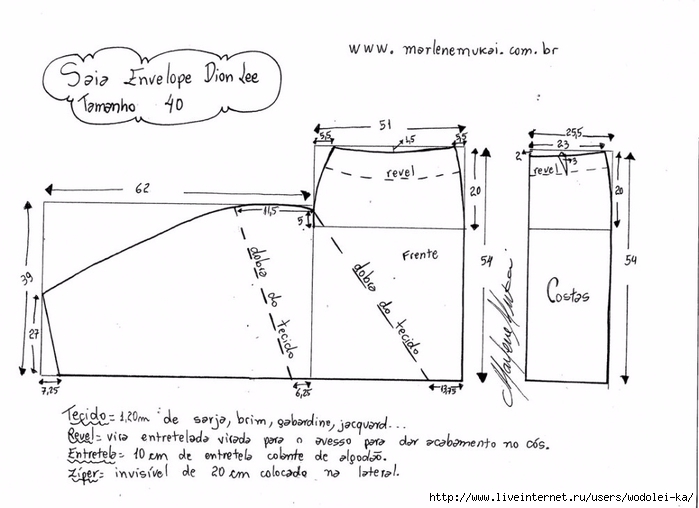 www. marlenemukai.com.br
Saia Envelope Dion Lee
Tamanho 40
51
5,5
1,5
5,5
revel
20
54
Frente
62
11,5
5
39
27
dobra do tecido
dobra do tecido
7,25
6,25
13,75
25,5
23
2
3
revel
20
54
Costas
Marlene Mukai
Tecido= 1,20m de sarja, brim, gabardine, jacquard...
Revel= vira entretelada virada para o avesso para dar acabamento no cós.
Entretela= 10 cm de entretela colante de algodão.
Zíper= invisível de 20 cm colocado na lateral.
http://www.liveinternet.ru/users/wodolei-ka/